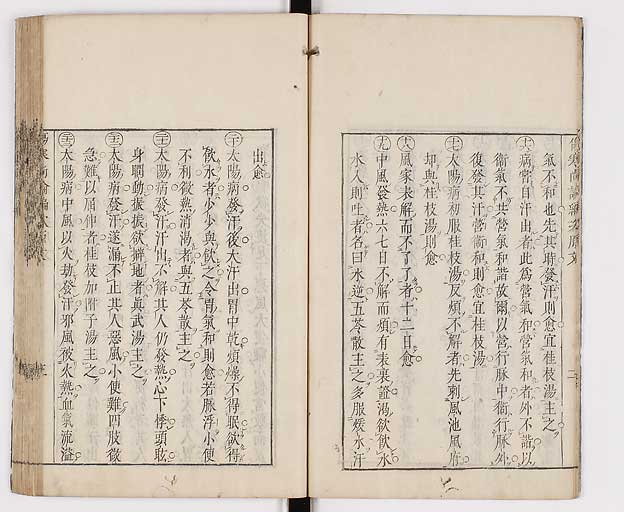 氣不和也先其時發汗則愈宜桂枝湯主之
㊅病常自汗出者此爲營氣和營氣和者外不諧以
衞氣不共營氣和諧故爾以營行脉中衞行脉外
復發其汗營衞和則愈宜桂枝湯
太陽病初服桂枝湯反煩不解者先刺風池風府
却與桂枝湯則愈
風家表解而不了了者十二日愈
中風發熱六七日不解而煩有表裏證渴欲飮水
水入則吐者名曰水逆五苓散主之多服煖水汗
出愈
太陽病發汗後大汗出胃中乾煩燥不得眠欲得
飮水者少少與飮之令胃氣和則愈若脉浮小便
不利微熱消渴者與五苓散主之
太陽病發汗汗出不解其人仍發熱心下悸頭眩
身瞤動振振欲擗地者眞武湯主之
太陽病發汗遂漏不止其人惡風小便難四肢微
急難以屈伸者桂枝加附子湯主之
太陽病中風以火劫發汗邪風被火熱血氣流溢